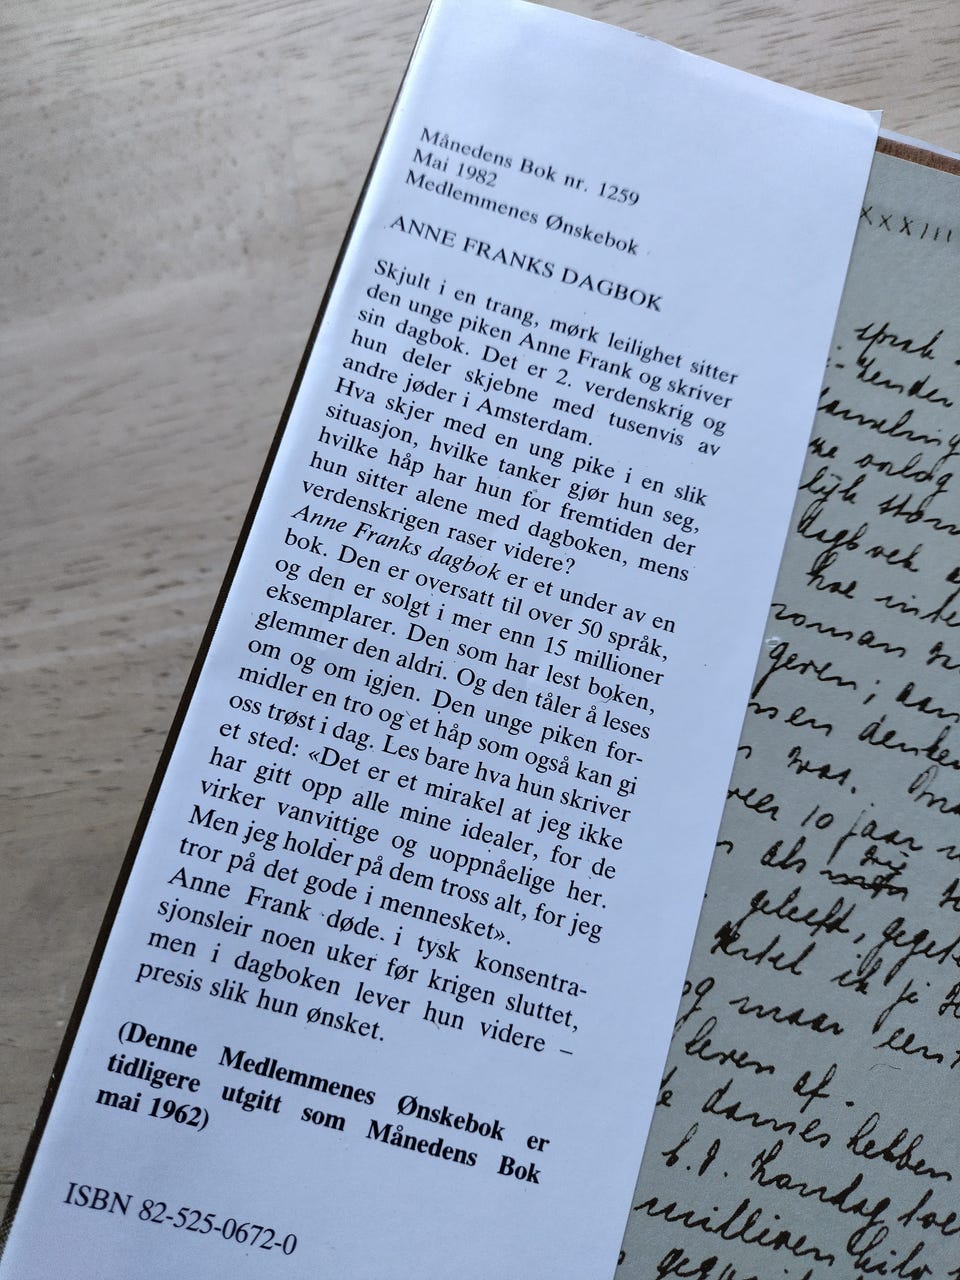 Månedens Bok nr. 1259
Mai 1982
Medlemmenes Ønskebok
ANNE FRANKS DAGBOK
Skjult i en trang, mørk leilighet sitter
den unge piken Anne Frank og skriver
sin dagbok. Det er 2. verdenskrig og
hun deler skjebne med tusenvis av
andre jøder i Amsterdam.
Hva skjer med en ung pike i en slik
situasjon, hvilke tanker gjør hun seg,
hvilke håp har hun for fremtiden der
hun sitter alene med dagboken, mens
verdenskrigen raser videre?
Anne Franks dagbok er et under av en
bok. Den er oversatt til over 50 språk,
og den er solgt i mer enn 15 millioner
eksemplarer. Den som har lest boken,
glemmer den aldri. Og den tåler å leses
om og om igjen. Den unge piken for-
midler en tro og et håp som også kan gi
oss trøst i dag. Les bare hva hun skriver
et sted: «Det er et mirakel at jeg ikke
har gitt opp alle mine idealer, for de
virker vanvittige og uoppnåelige her.
Men jeg holder på dem tross alt, for jeg
tror på det gode i mennesket».
Anne Frank døde. i tysk konsentra-
sjonsleir noen uker før krigen sluttet,
men i dagboken lever hun videre –
presis slik hun ønsket.
(Denne Medlemmenes Ønskebok er
tidligere utgitt som Månedens Bok
mai 1962)
ISBN 82-525-0672-0
XXXIII
roman
geven; aan
denken
was.
10 jaar
als
geleeft,
vertel ik je
maar een
leven af.
dames hebben
millioen kilo